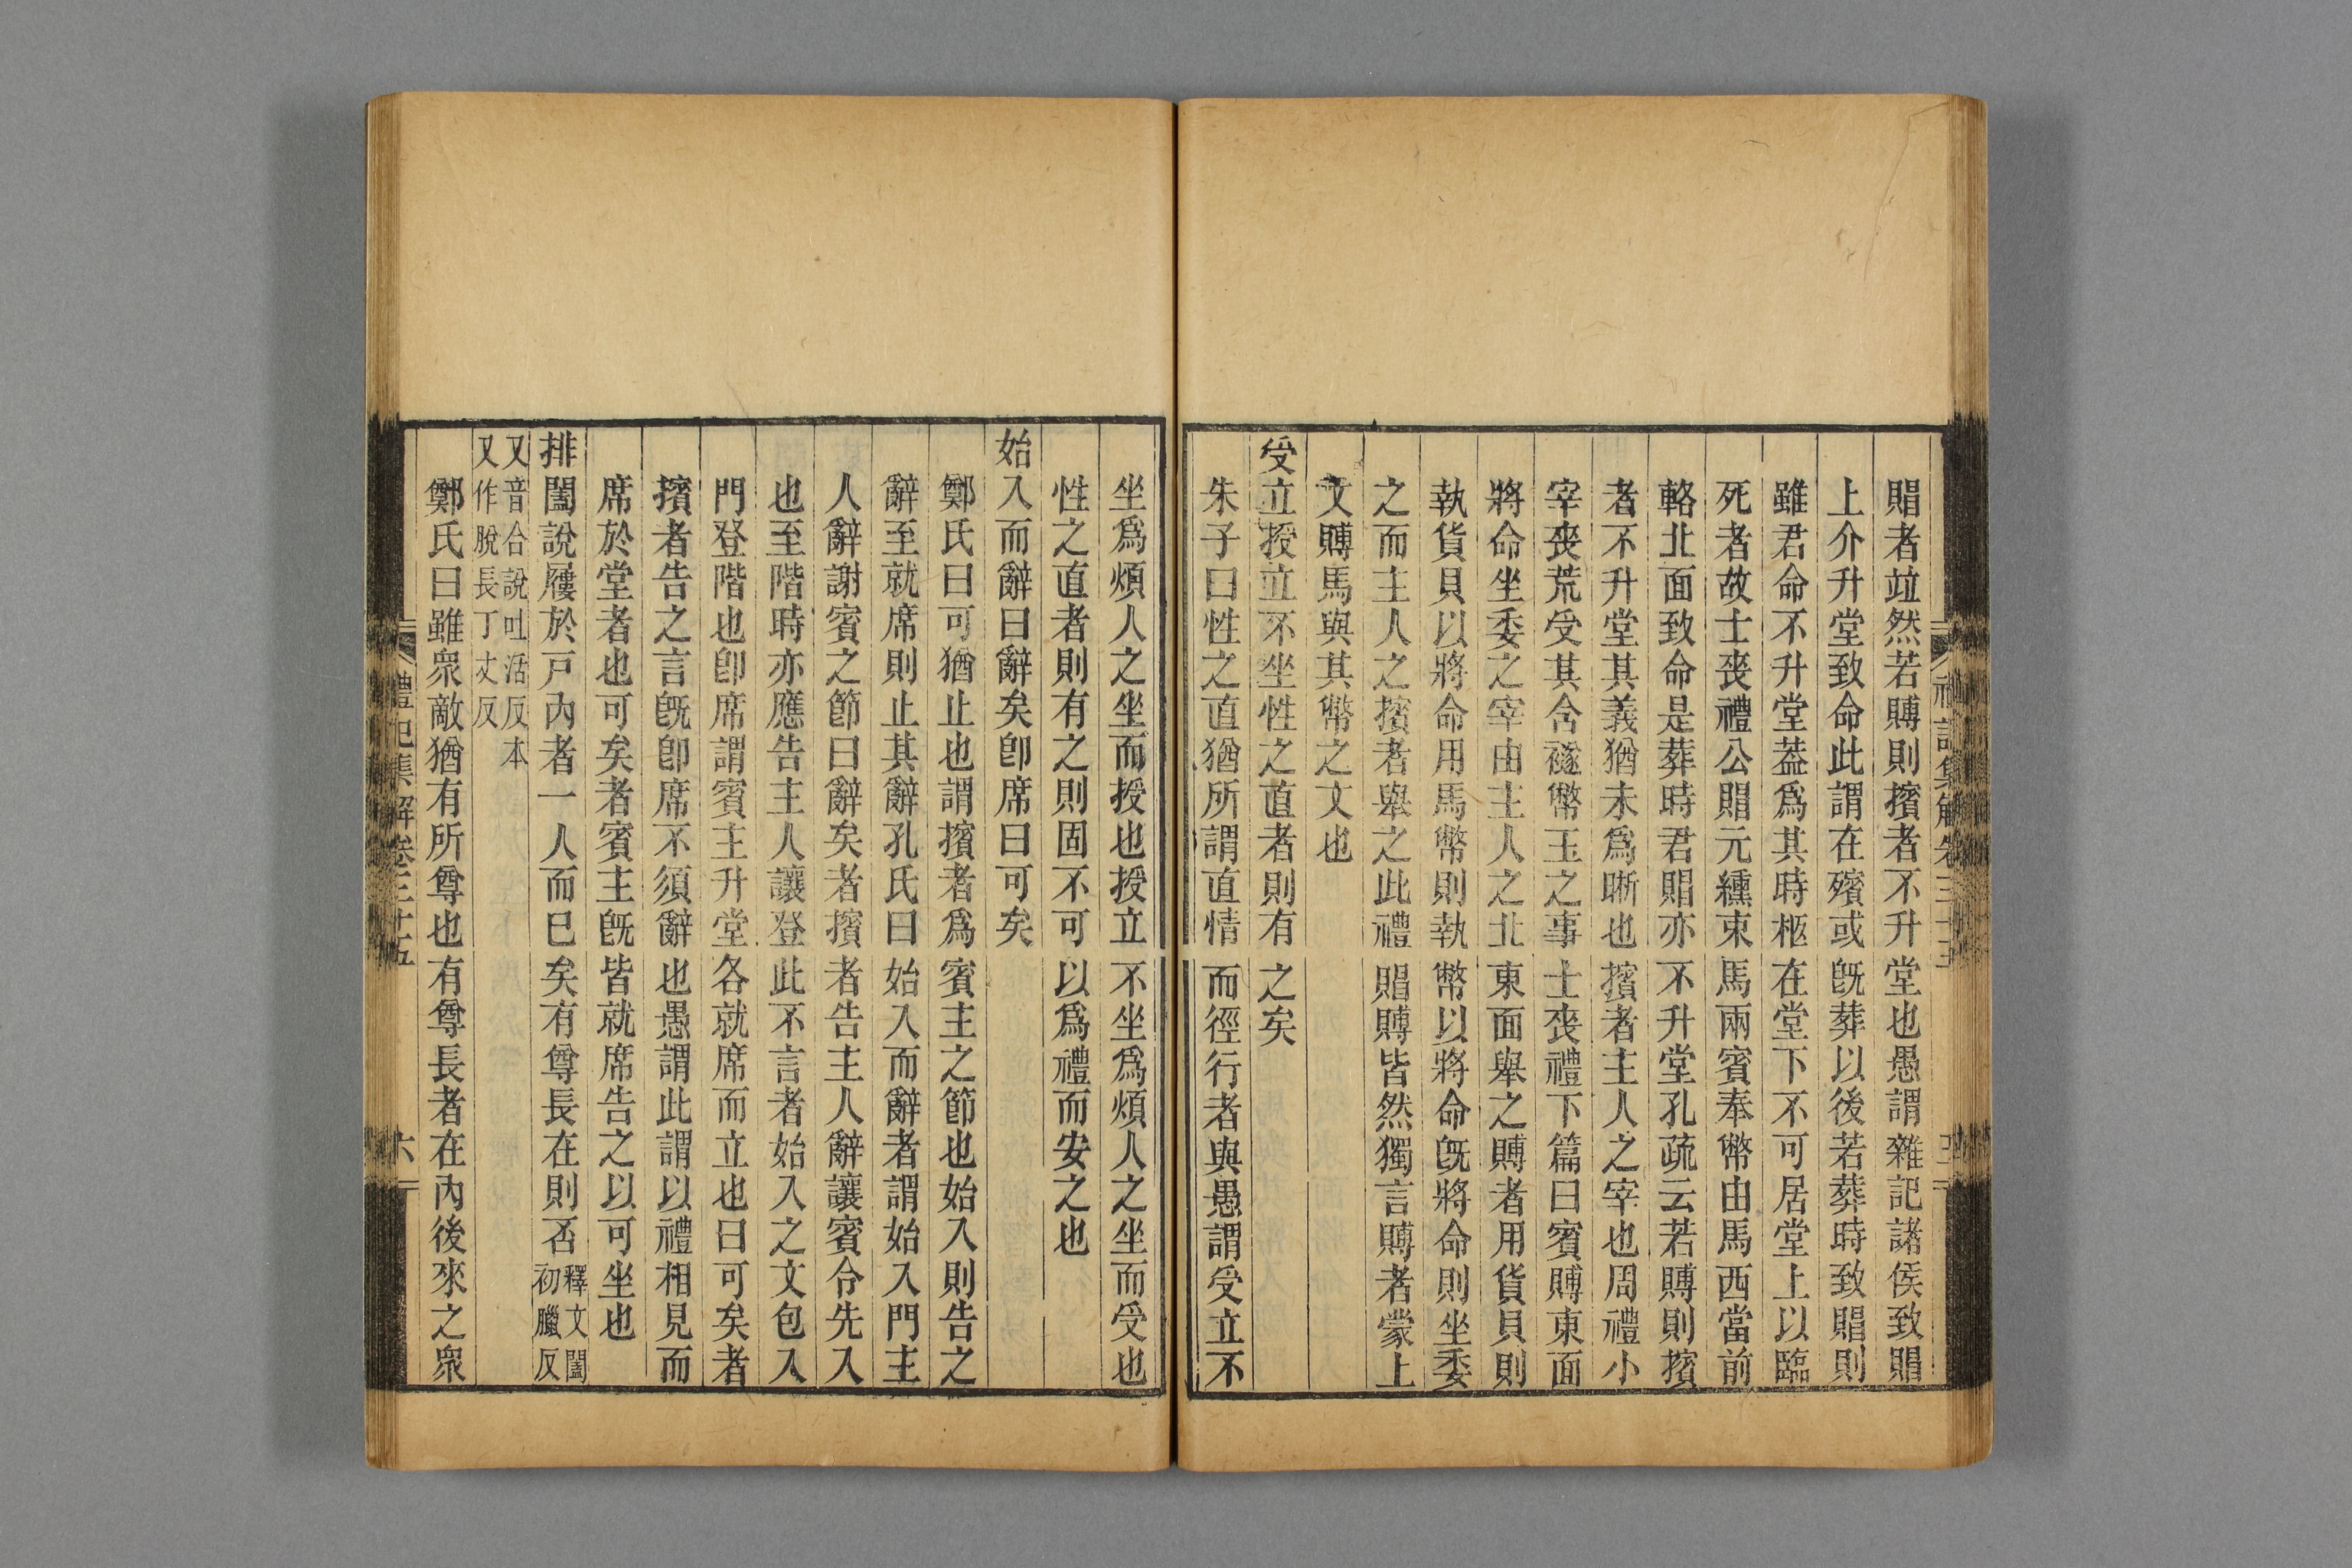 賵者竝然若賻則擯者不升堂也愚謂雜記諸侯致賵
上介升堂致命此謂在殯或旣葬以後若葬時致賵則
雖君命不升堂葢爲其時柩在堂下不可居堂上以臨
死者故士喪禮公賵元纁束馬兩賓奉幣由馬西當前
輅北面致命是葬時君賵亦不升堂孔疏云若賻則擯
者不升堂其義猶未爲晰也擯者主人之宰也周禮小
宰喪荒受其含襚幣玉之事士喪禮下篇曰賓賻東面
將命坐委之宰由主人之北東面舉之賻者用貨貝則
執貨貝以將命用馬幣則執幣以將命旣將命則坐委
之而主人之擯者舉之此禮賵賻皆然獨言賻者蒙上
文賻馬與其幣之文也
受立授立不坐性之直者則有之矣
朱子曰性之直猶所謂直情而徑行者與愚謂受立不
坐爲煩人之坐而授也授立不坐爲煩人之坐而受也
性之直者則有之則固不可以爲禮而安之也
始入而辭曰辭矣卽席曰可矣
鄭氏曰可猶止也謂擯者爲賓主之節也始入則告之
辭至就席則止其辭孔氏曰始入而辭者謂始入門主
人辭謝賓之節曰辭矣者擯者告主人辭讓賓令先入
也至階時亦應告主人讓登此不言者始入之文包入
門登階也卽席謂賓主升堂各就席而立也曰可矣者
擯者告之言旣卽席不須辭也愚謂此謂以禮相見而
席於堂者也可矣者賓主旣皆就席告之以可坐也
排闔說屨於戸內者一人而已矣有尊長在則否釋文闔
初臘反
又音合說吐活反本
又作脫長丁丈反
鄭氏曰雖衆敵猶有所尊也有尊長者在內後來之衆
禮記集解卷三十五
六